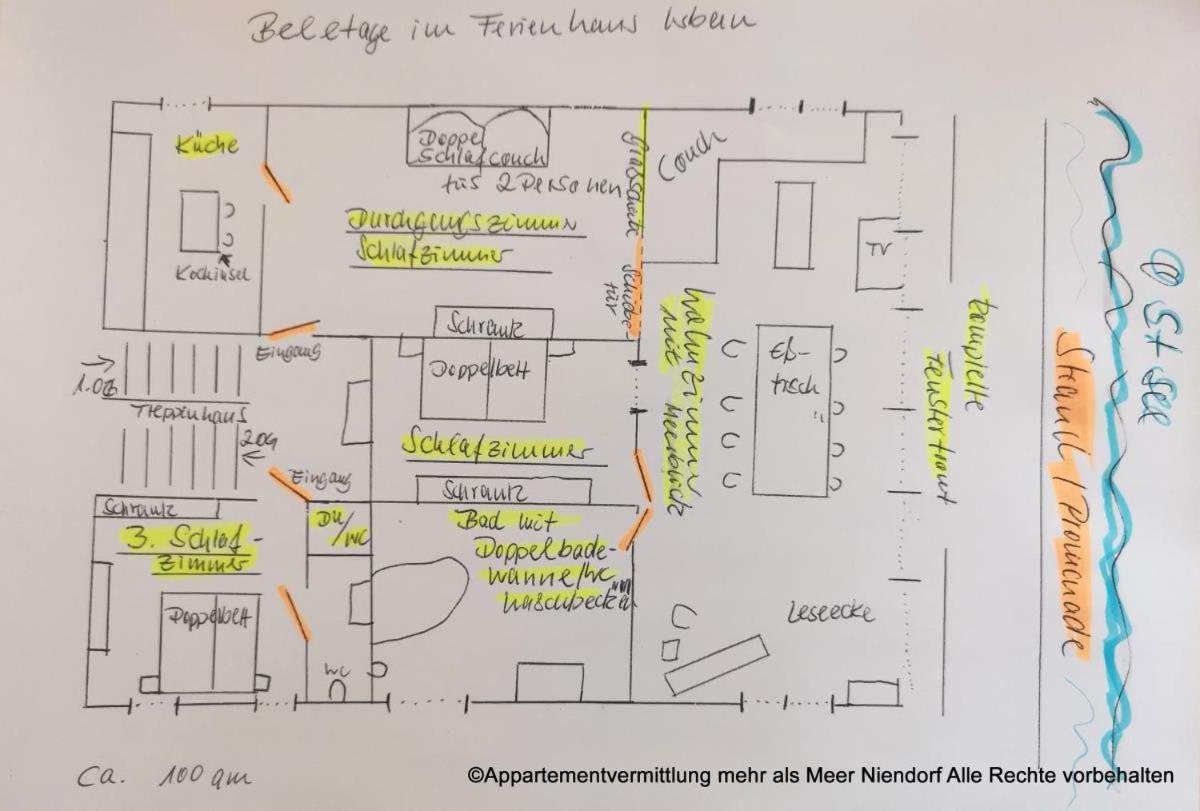 Beletage im Ferienhaus
Küche
Doppel
Schlafcouch
für 2 Personen
Glasscheibe
Couch
Durchgangszimmer
Schlafzimmer
Schiebe-
tür
TV
Kochinsel
Eingang
Schrank
Wohnzimmer
mit Meerblick
Eß-
tisch
komplette
Fensterfront
Strand / Promenade
Ostsee
1.OG
Treppenhaus
2.OG
Doppelbett
Schlafzimmer
Eingang
Schrank
Schrank
DU/
WC
3. Schlaf-
zimmer
Bad mit
Doppelbade-
wanne/WC
Waschbecken
Doppelbett
WC
Leseecke
ca. 100 qm
©Appartementvermittlung mehr als Meer Niendorf Alle Rechte vorbehalten